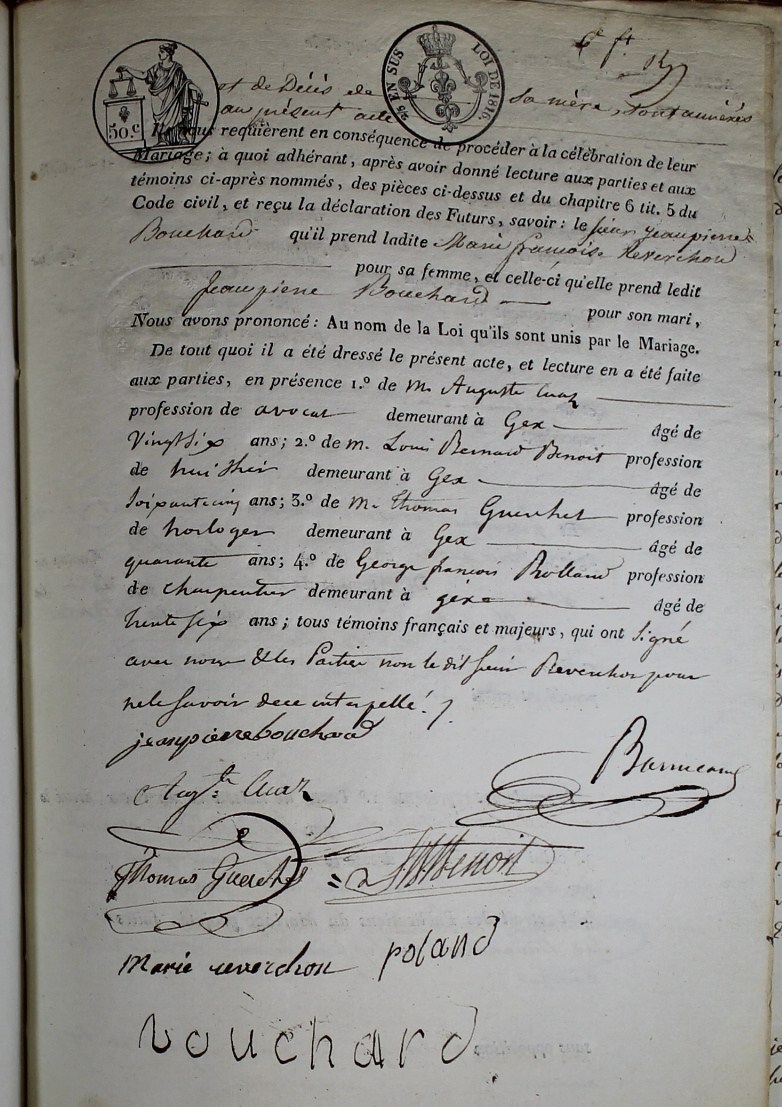 50.c
25 EN SUS LOI DE 1816
et de Décès de sa mère, tout annexés
au présent acte
Ils nous requièrent en conséquence de procéder à la célébration de leur
Mariage; à quoi adhérant, après avoir donné lecture aux parties et aux
témoins ci-après nommés, des pièces ci-dessus et du chapitre 6 tit. 5 du
Code civil, et reçu la déclaration des Futurs, savoir: le sieur jean pierre
Bouchard qu'il prend ladite Marie françoise Reverchon
pour sa femme, et celle-ci qu'elle prend ledit
Jean pierre Bouchard pour son mari,
Nous avons prononcé: Au nom de la Loi qu'ils sont unis par le Mariage.
De tout quoi il a été dressé le présent acte, et lecture en a été faite
aux parties, en présence 1.º de M. Auguste
profession de avocat demeurant à Gex âgé de
vingt six ans; 2.º de M. Louis Bernard Benoit profession
de huissier demeurant à Gex âgé de
soixante cinq ans; 3.º de M. Thomas Guerchet profession
de horloger demeurant à Gex âgé de
quarante ans; 4.º de George françois Rolland profession
de charpentier demeurant à gex âgé de
trente six ans; tous témoins français et majeurs, qui ont signé
avec nous & les Parties non le dit sieur Reverchon pour
ne le savoir de ce interpellé.
jean pierre bouchard
Thomas Guerchet
Benoit
marie reverchon poland
bouchard